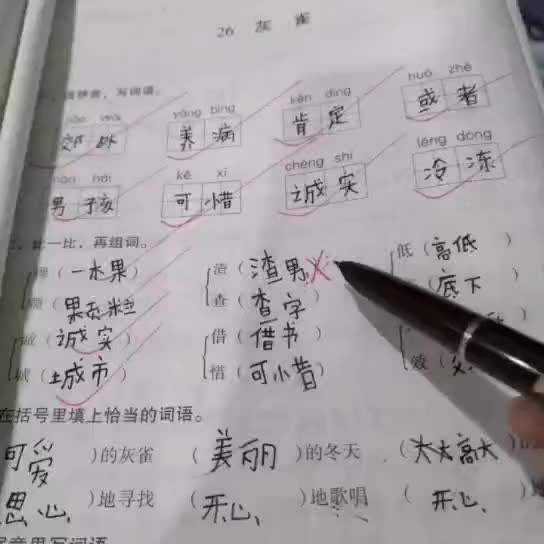 26 灰 雀
拼音，写词语。
yǎng bìng kěn dìng huò zhě
郊外 养病 肯定 或者
hái kě xī chéng shí lěng dòng
男孩 可惜 诚实 冷冻
比一比，再组词。
（一水果） 渣（渣男） 低（高低）
（果页粒） 查（查字） （底下）
（诚实） 借（借书）
（城市） 惜（可惜） 效
在括号里填上恰当的词语。
可爱）的灰雀 （美丽）的冬天 （大大高大）
思心）地寻找 （开心）地歌唱 （开心）地